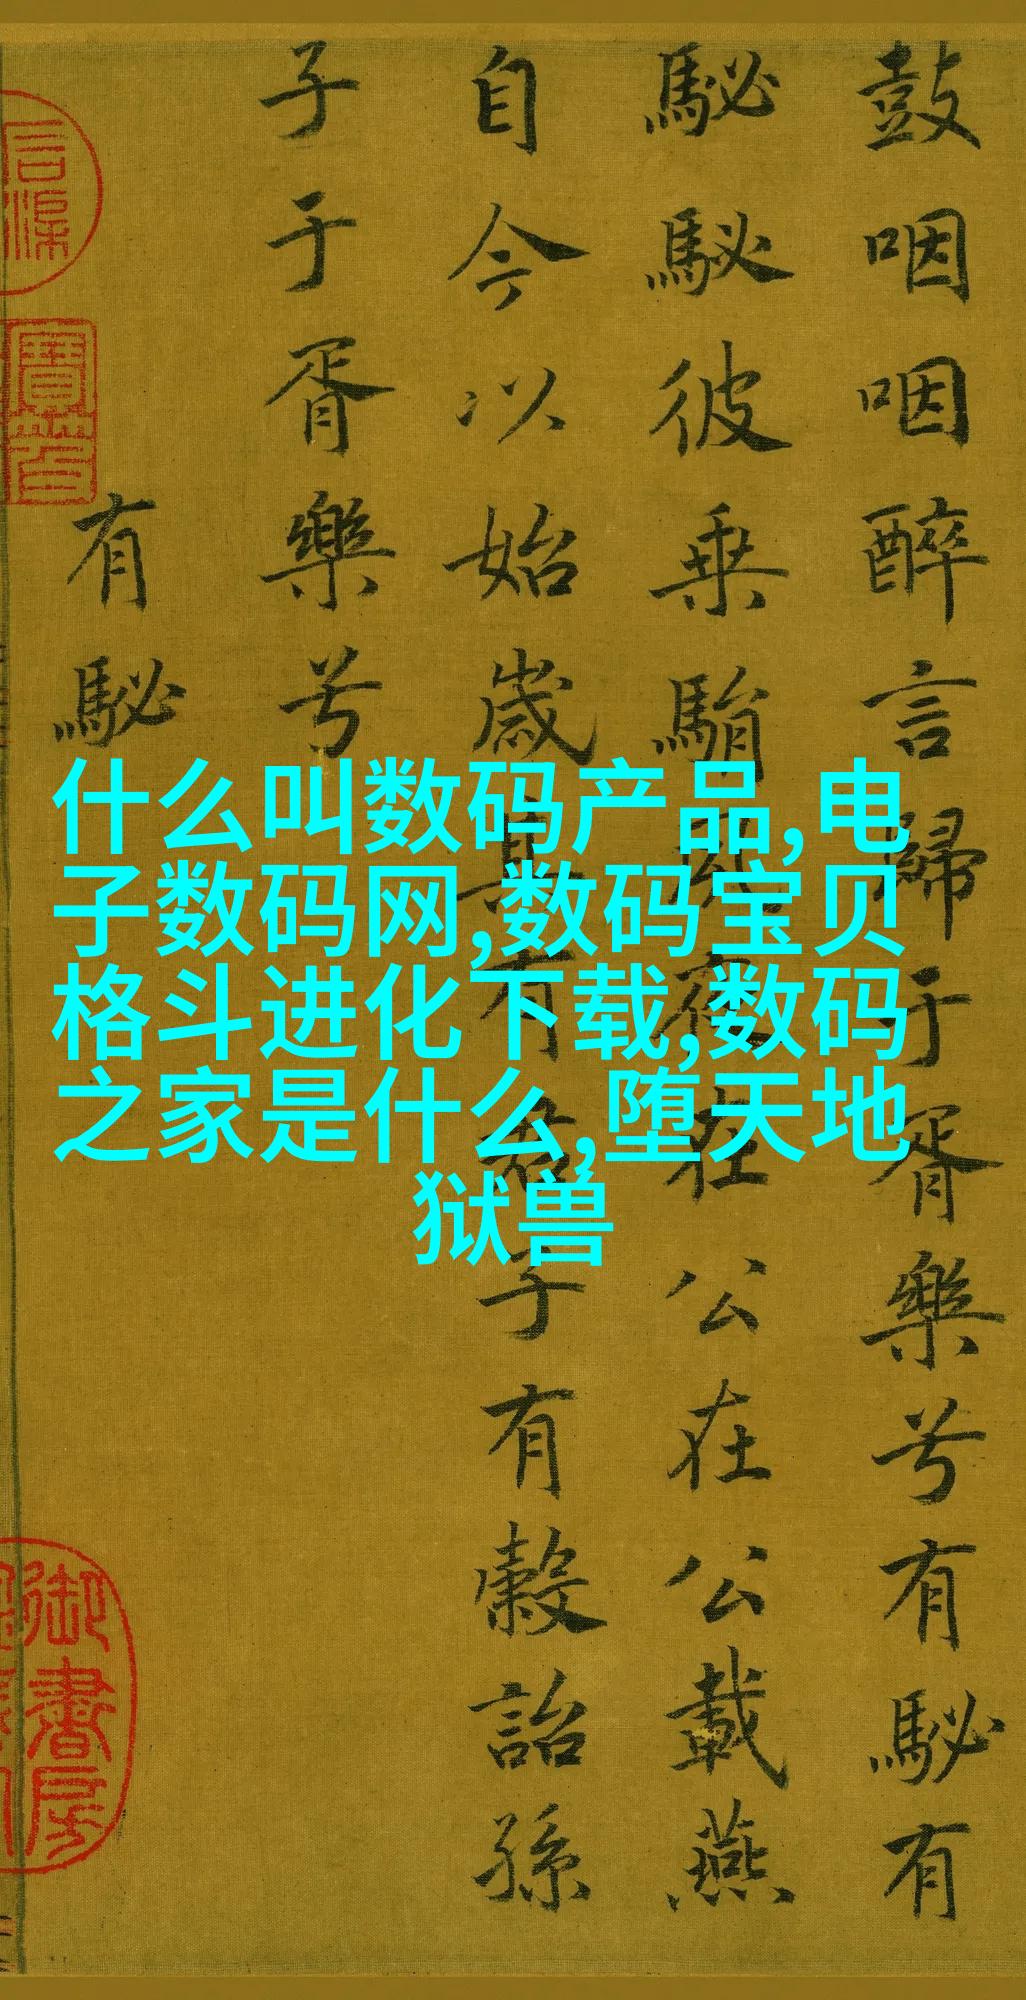 鼓咽咽醉言歸于胥樂兮有駜有
駜駜彼乗駽夙夜在公在公載燕
自今以始歲其有君子有穀詒孫
子于胥樂兮
有駜
什么叫数码产品,电
子数码网,数码宝贝
格斗进化下载,数码
之家是什么,堕天地
狱兽
寶笈
御書房